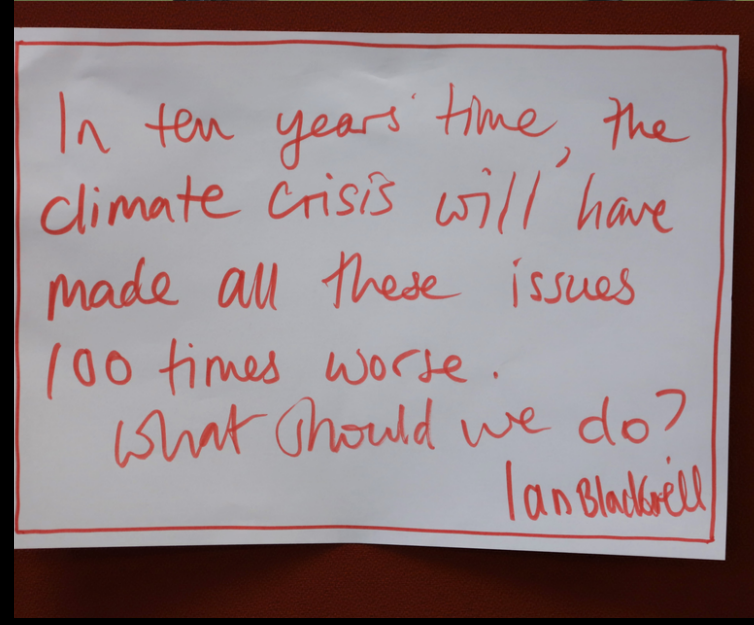 In ten years' time, the
climate crisis will have
made all these issues
100 times worse.
What should we do?
Ian Blackwell